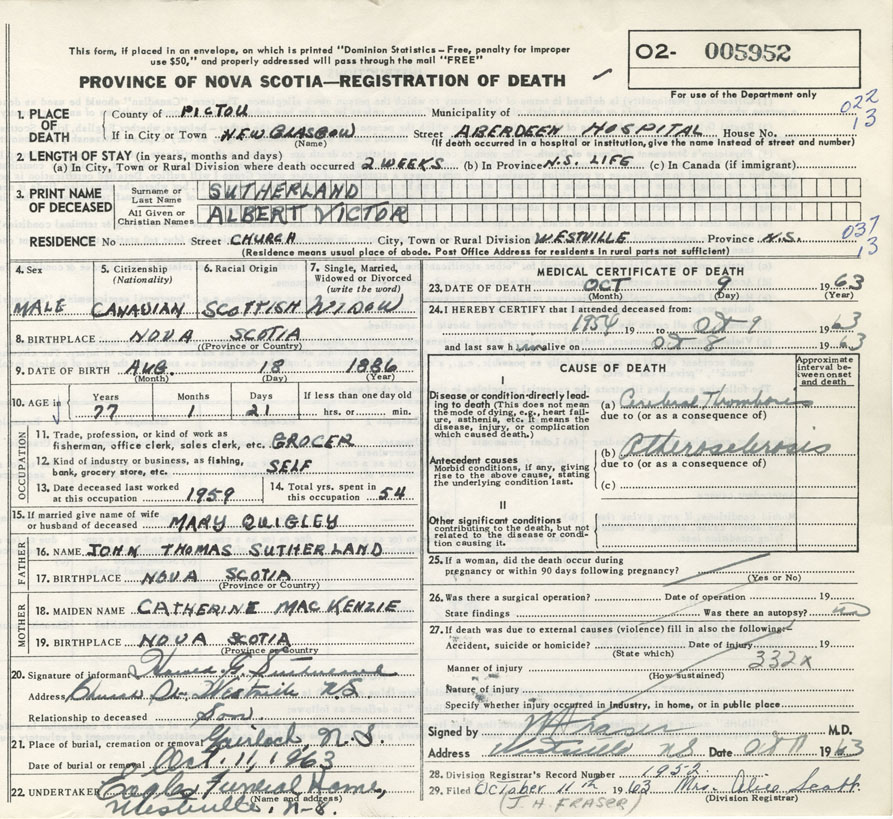 This form, if placed in an envelope, on which is printed "Dominion Statistics – Free, penalty for improper
use $50," and properly addressed will pass through the mail "FREE"
O2- 005952
For use of the Department only
PROVINCE OF NOVA SCOTIA—REGISTRATION OF DEATH
022
13
1. PLACE OF DEATH County of PICTOU Municipality of
If in City or Town NEW GLASGOW (Name) Street ABERDEEN HOSPITAL House No.
(If death occurred in a hospital or institution, give the name instead of street and number)
2. LENGTH OF STAY (in years, months and days)
(a) In City, Town or Rural Division where death occurred 2 WEEKS (b) In Province N.S. LIFE (c) In Canada (if immigrant)
3. PRINT NAME OF DECEASED
Surname or Last Name SUTHERLAND
All Given or Christian Names ALBERT VICTOR
037
13
RESIDENCE No Street CHURCH City, Town or Rural Division WESTVILLE Province N.S.
(Residence means usual place of abode. Post Office Address for residents in rural parts not sufficient)
4. Sex MALE
5. Citizenship (Nationality) CANADIAN
6. Racial Origin SCOTTISH
7. Single, Married, Widowed or Divorced (write the word) WIDOW
8. BIRTHPLACE NOVA SCOTIA
(Province or Country)
9. DATE OF BIRTH AUG. 18 1886
(Month) (Day) (Year)
10. AGE in Years 77 Months 1 Days 21 If less than one day old hrs. or min.
OCCUPATION
11. Trade, profession, or kind of work as
fisherman, office clerk, sales clerk, etc. GROCER
12. Kind of industry or business, as fishing,
bank, grocery store, etc. SELF
13. Date deceased last worked at this occupation 1959
14. Total yrs. spent in this occupation 54
15. If married give name of wife
or husband of deceased MARY QUIGLEY
FATHER
16. NAME JOHN THOMAS SUTHERLAND
17. BIRTHPLACE NOVA SCOTIA
(Province or Country)
MOTHER
18. MAIDEN NAME CATHERINE MACKENZIE
19. BIRTHPLACE NOVA SCOTIA
(Province or Country)
20. Signature of informant G. Sutherland
Address Church St. Westville N.S.
Relationship to deceased Son
21. Place of burial, cremation or removal Gairloch, N.S.
Date of burial or removal Oct. 11, 1963
22. UNDERTAKER Eagles Funeral Home,
(Name and address)
Westville, N.S.
MEDICAL CERTIFICATE OF DEATH
23. DATE OF DEATH OCT 9 1963
(Month) (Day) (Year)
24. I HEREBY CERTIFY that I attended deceased from:
1954 19 to Oct 9 1963
and last saw h alive on Oct 8 1963
CAUSE OF DEATH
Approximate interval between onset and death
I
Disease or condition directly leading
to death (This does not mean
the mode of dying, e.g., heart failure,
asthenia, etc. It means the
disease, injury, or complication
which caused death.)
(a) Cerebral Thrombosis
due to (or as a consequence of)
Antecedent causes
Morbid conditions, if any, giving
rise to the above cause, stating
the underlying condition last.
(b) Atherosclerosis
due to (or as a consequence of)
(c)
II
Other significant conditions
contributing to the death, but not
related to the disease or condition
causing it.
25. If a woman, did the death occur during
pregnancy or within 90 days following pregnancy?
(Yes or No)
26. Was there a surgical operation? Date of operation 19
State findings Was there an autopsy? no
27. If death was due to external causes (violence) fill in also the following:
Accident, suicide or homicide? (State which) Date of injury 19
332x
Manner of injury
(How sustained)
Nature of injury
Specify whether injury occurred in industry, in home, or in public place
Signed by Fraser M.D.
Address Westville N.S. Date Oct 11 1963
28. Division Registrar's Record Number 1952
29. Filed October 11th 1963 Mrs. Alice Scott
(J. H. FRASER) (Division Registrar)